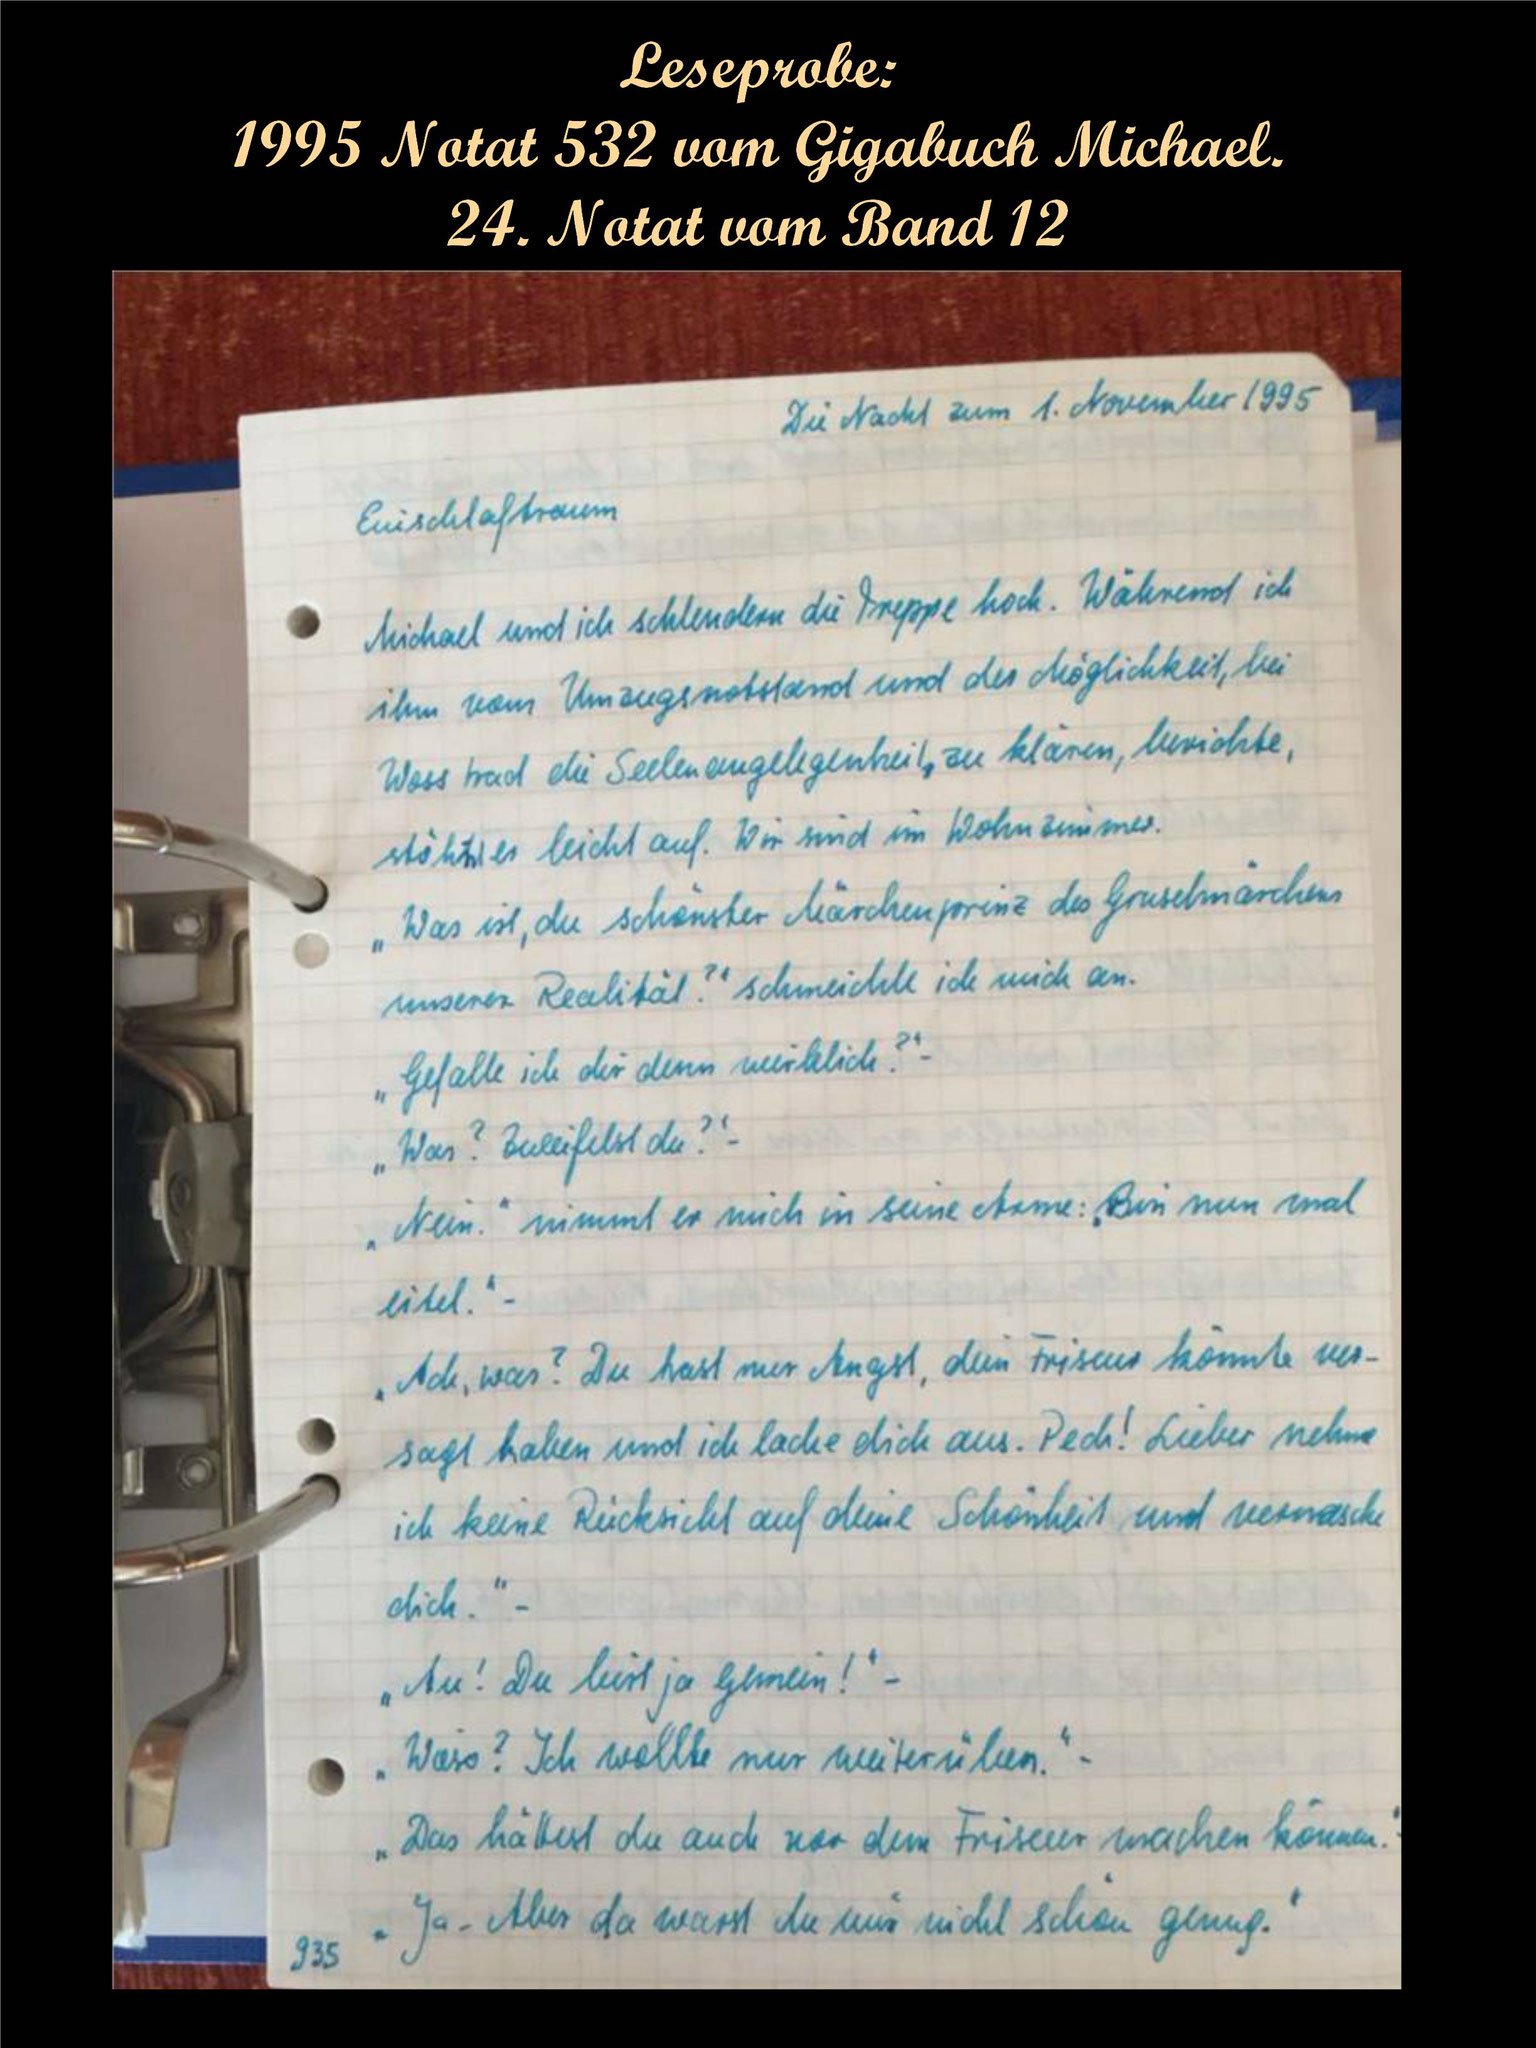 Leseprobe:
1995 Notat 532 vom Gigabuch Michael.
24. Notat vom Band 12
Die Nacht zum 1. November 1995
Einschlaftraum
Michael und ich schlendern die Treppe hoch. Während ich
ihm vom Umzugsnotstand und der Möglichkeit, bei
Woss trad die Seelenangelegenheit, zu klären, berichte,
stöhnt er leicht auf. Wir sind im Wohnzimmer.
„Was ist, du schönster Märchenprinz des Gruselmärchens
unserer Realität?“ schmeichle ich mich an.
„Gefalle ich dir denn wirklich?“-
„Was? Zweifelst du?“-
„Nein.“ nimmt er mich in seine Arme: „Bin nun mal
eitel.“-
„Ach, was? Du hast nur Angst, dein Friseur könnte ver-
sagt haben und ich lache dich aus. Pech! Lieber nehme
ich keine Rücksicht auf deine Schönheit und vernasche
dich.“-
„Au! Du bist ja gemein!“-
„Wieso? Ich wollte nur weiterüben.“-
„Das hättest du auch vor dem Friseur machen können.“-
„Ja - Aber da warst du mir nicht schön genug.“
935